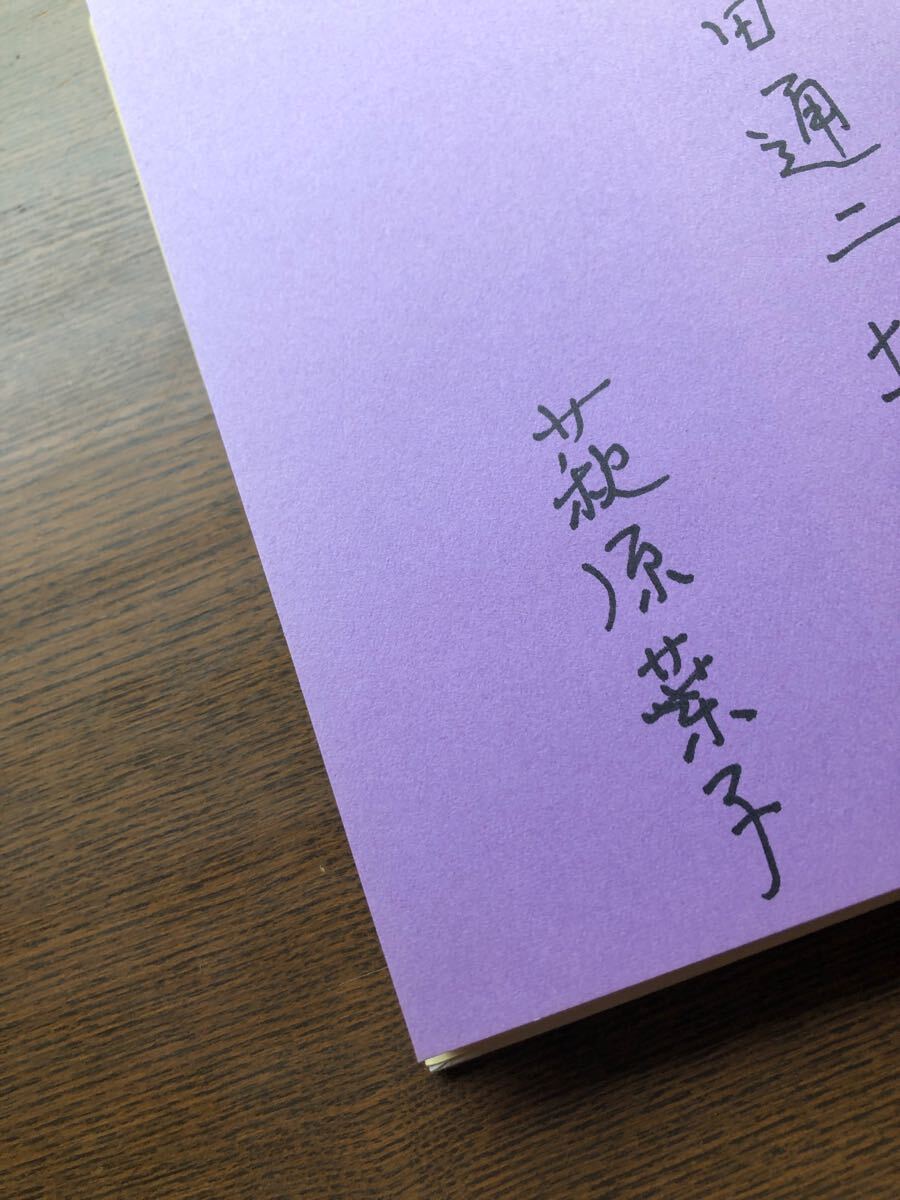 田通二
萩原葉子